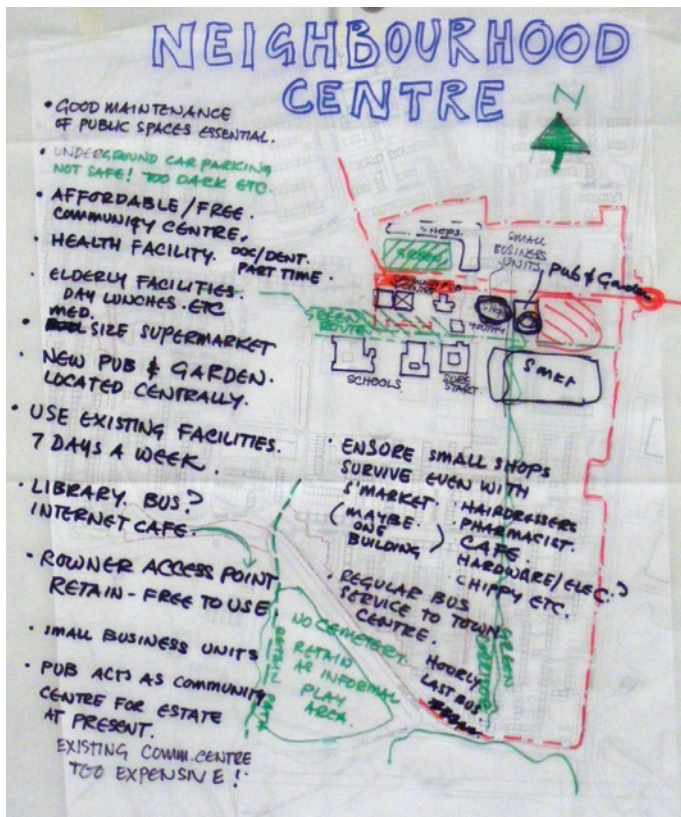 NEIGHBOURHOOD
CENTRE
N
• GOOD MAINTENANCE
OF PUBLIC SPACES ESSENTIAL.
• UNDERGROUND CAR PARKING
NOT SAFE! TOO DARK ETC
• AFFORDABLE/FREE.
COMMUNITY CENTRE.
• HEALTH FACILITY. DOC/DENT.
PART TIME.
• ELDERLY FACILITIES.
DAY LUNCHES. ETC
• MED. SIZE SUPERMARKET
• NEW PUB & GARDEN.
LOCATED CENTRALLY.
• USE EXISTING FACILITIES.
7 DAYS A WEEK.
• LIBRARY. BUS?
INTERNET CAFE.
• ROWNER ACCESS POINT
RETAIN - FREE TO USE.
• SMALL BUSINESS UNITS
• PUB ACTS AS COMMUNITY
CENTRE FOR ESTATE
AT PRESENT.
EXISTING COMM. CENTRE
TOO EXPENSIVE!
SHOPS
GREEN
SMALL
BUSINESS
UNITS
PUB & Garden
GREEN
ROUTE
YOUTH
SCHOOLS
SURE
START
S'MKT
• ENSURE SMALL SHOPS
SURVIVE EVEN WITH
S'MARKET.
(MAYBE
ONE
BUILDING)
• HAIRDRESSERS
• PHARMACIST.
CAFE.
HARDWARE/ELEC.?
• CHIPPY ETC.
• REGULAR BUS
SERVICE TO TOWN
CENTRE.
HOURLY
LAST BUS
NO CEMETERY
RETAIN
AS INFORMAL
PLAY
AREA.
RETAIN PATH
GREEN